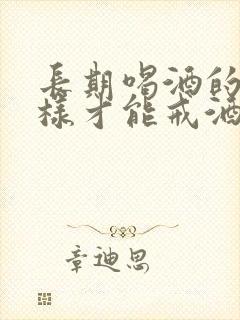 長期喝酒的
樣才能戒酒
章迪思